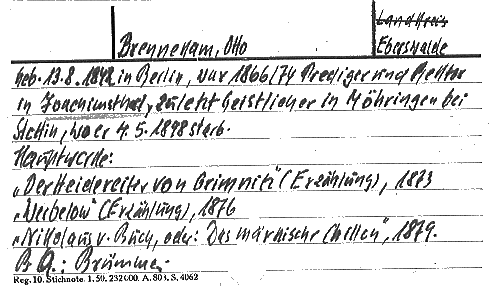 Landkreis
Brennekam, Otto Eberswalde
geb. 13.8.1842 in Berlin, war 1866/74 Prediger und Rektor
in Joachimsthal, zuletzt Geistlicher in Möhringen bei
Stettin, wo er 4.5.1898 starb.
Hauptwerke:
„Der Heidereiter von Grimnitz" (Erzählung), 1873
„Werbelow" (Erzählung), 1876
„Nikolaus v. Buch, oder: Das märkische Chillon", 1879.
B Q.: Brümmer.
Reg. 10. Stichnote. 1. 50. 232000. A. 803. S. 4062